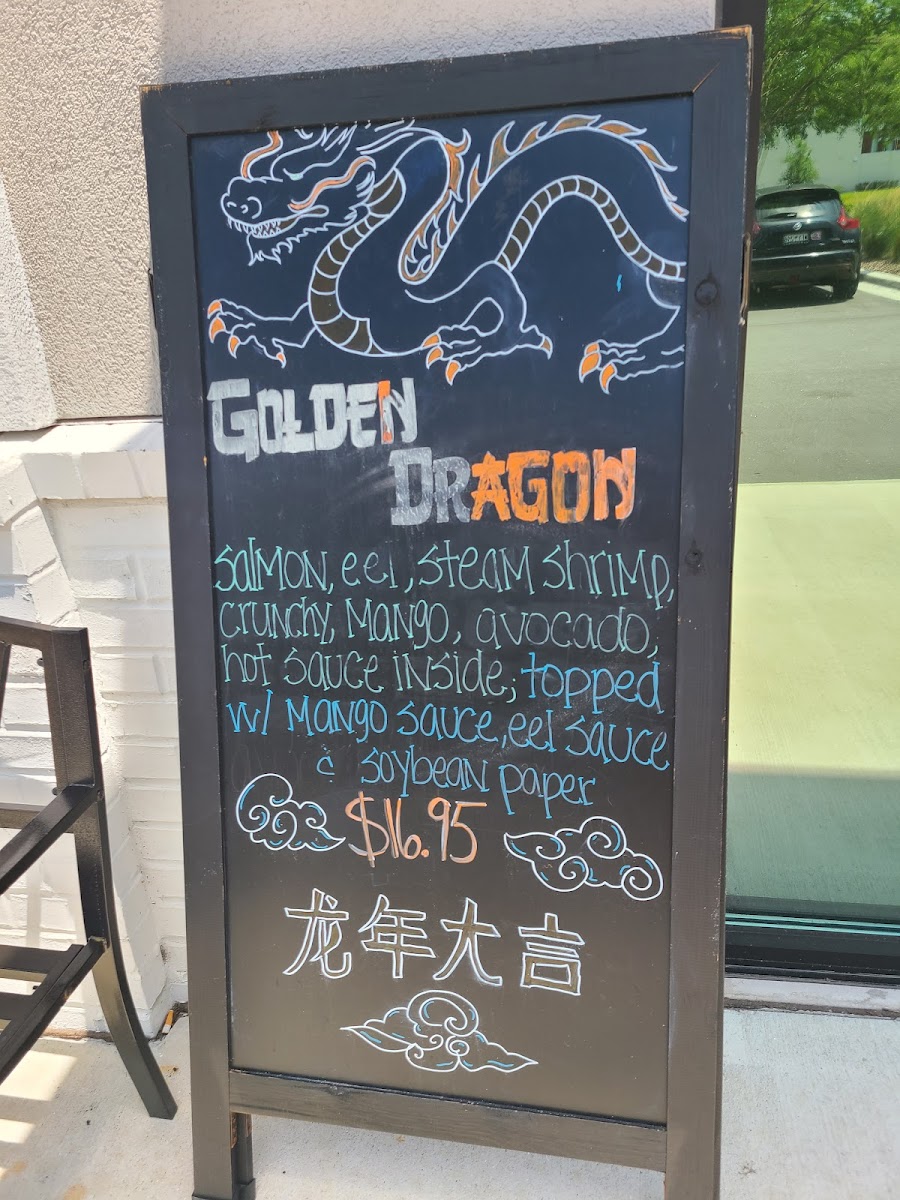 GOLDEN
DRAGON
salmon, eel, steam shrimp,
crunchy, mango, avocado,
hot sauce inside; topped
w/ mango sauce, eel sauce
& soybean paper
$16.95
龙年大言